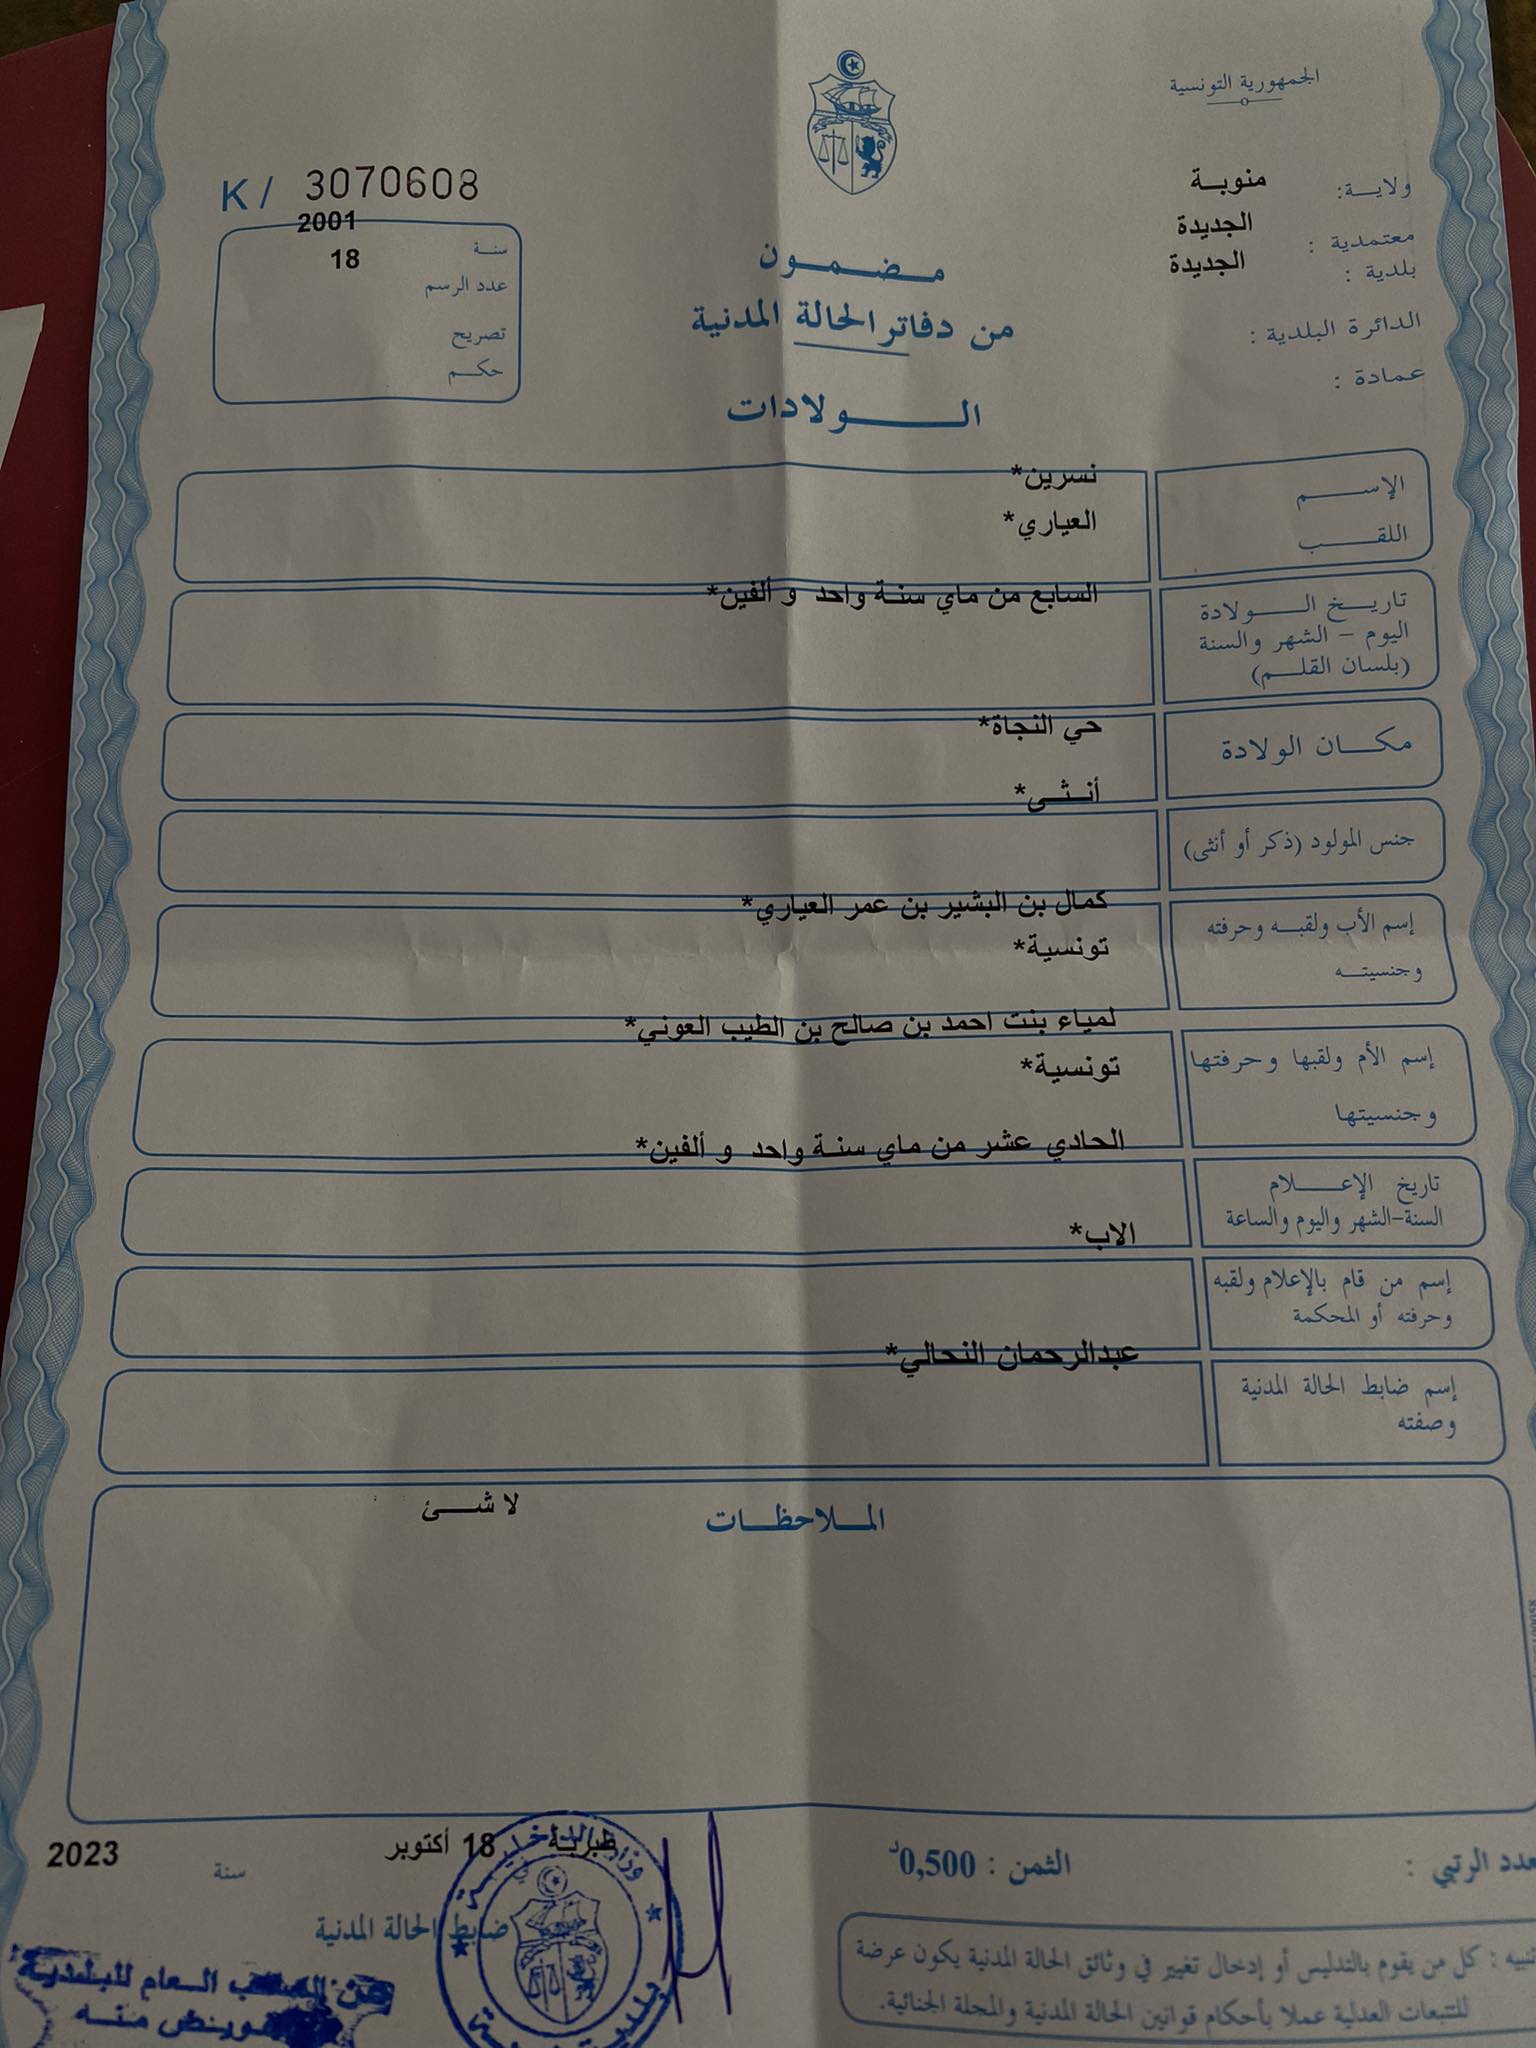 الجمهورية التونسية
ولايـــة: منوبــة
معتمدية : الجديدة
بلدية : الجديدة
الدائرة البلدية :
عمادة :
K / 3070608
سنة 2001
عدد الرسم 18
تصريح
حكـم
مـضـمـون
من دفاتر الحالة المدنية
الـــولادات
الإســـم نسرين*
اللقـــب العياري*
تاريــخ الـــولادة السابع من ماي سنة واحد و ألفين*
اليوم – الشهر والسنة
(بلسان القلـم)
مكـــان الولادة حي النجاة*
جنس المولود (ذكر أو أنثى) أنــثــى*
إسم الأب ولقبـــه وحرفته كمال بن البشير بن عمر العياري*
وجنسيتـــه تونسية*
إسم الأم ولقبها وحرفتها لمياء بنت احمد بن صالح بن الطيب العوني*
وجنسيتها تونسية*
تاريخ الإعـــلام الحادي عشر من ماي سنة واحد و ألفين*
السنة-الشهر واليوم والساعة
إسم من قام بالإعلام ولقبه الاب*
وحرفته أو المحكمة
إسم ضابط الحالة المدنية عبدالرحمان النحالي*
وصفته
المـلاحظـات
لا شـــئ
طبربة في 18 أكتوبر سنة 2023
ضابط الحالة المدنية
عدد الرتبي :
الثمن : 0,500د
تنبيه : كل من يقوم بالتدليس أو إدخال تغيير في وثائق الحالة المدنية يكون عرضة
للتتبعات العدلية عملا بأحكام قوانين الحالة المدنية والمجلة الجنائية.
وزارة الداخلية
العام للبلدية
منـــه